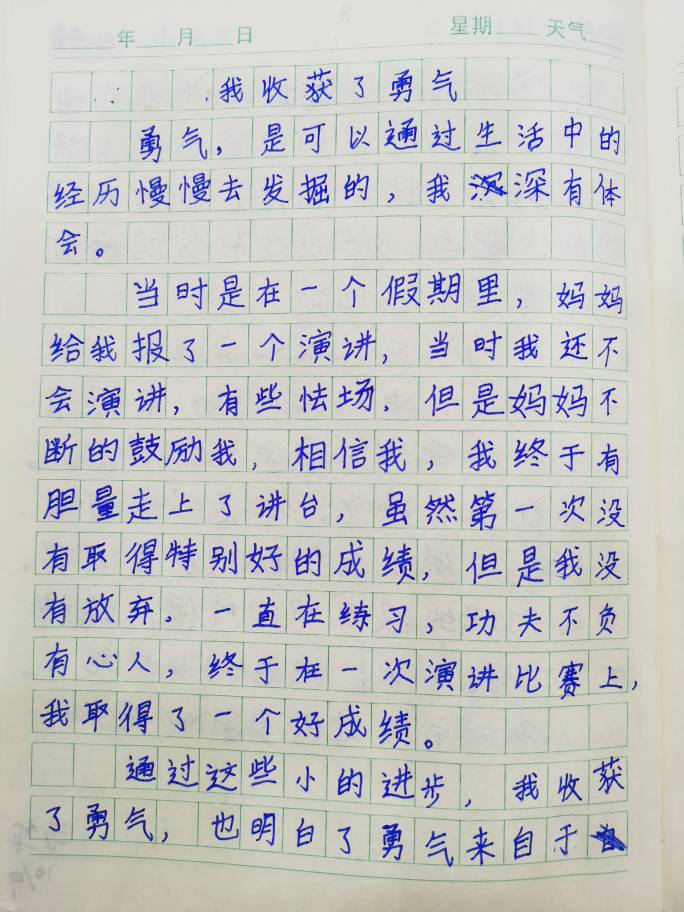 年 月 日 星期 天气
我收获了勇气
勇气，是可以通过生活中的
经历慢慢去发掘的，我深有体
会。
当时是在一个假期里，妈妈
给我报了一个演讲，当时我还不
会演讲，有些怯场．但是妈妈不
断的鼓励我，相信我，我终于有
胆量走上了讲台，虽然第一次没
有取得特别好的成绩，但是我没
有放弃．一直在练习，功夫不负
有心人，终于在一次演讲比赛上，
我取得了一个好成绩。
通过这些小的进步，我收获
了勇气，也明白了勇气来自于